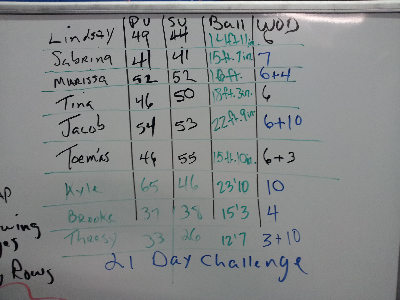 PU SU Ball WOD
Lindsay 49 44 14ft11in 6
Sabrina 41 41 15ft.7in 7
Marissa 52 52 18ft. 6+4
Tina 46 50 18ft.3in. 6
Jacob 54 53 22ft.9in 6+10
Toemas 46 55 15ft.10in. 6+3
Kyle 65 46 23'10 10
Brooke 37 38 15'3 4
33 26 12'7 3+10
21 Day Challenge
Rows